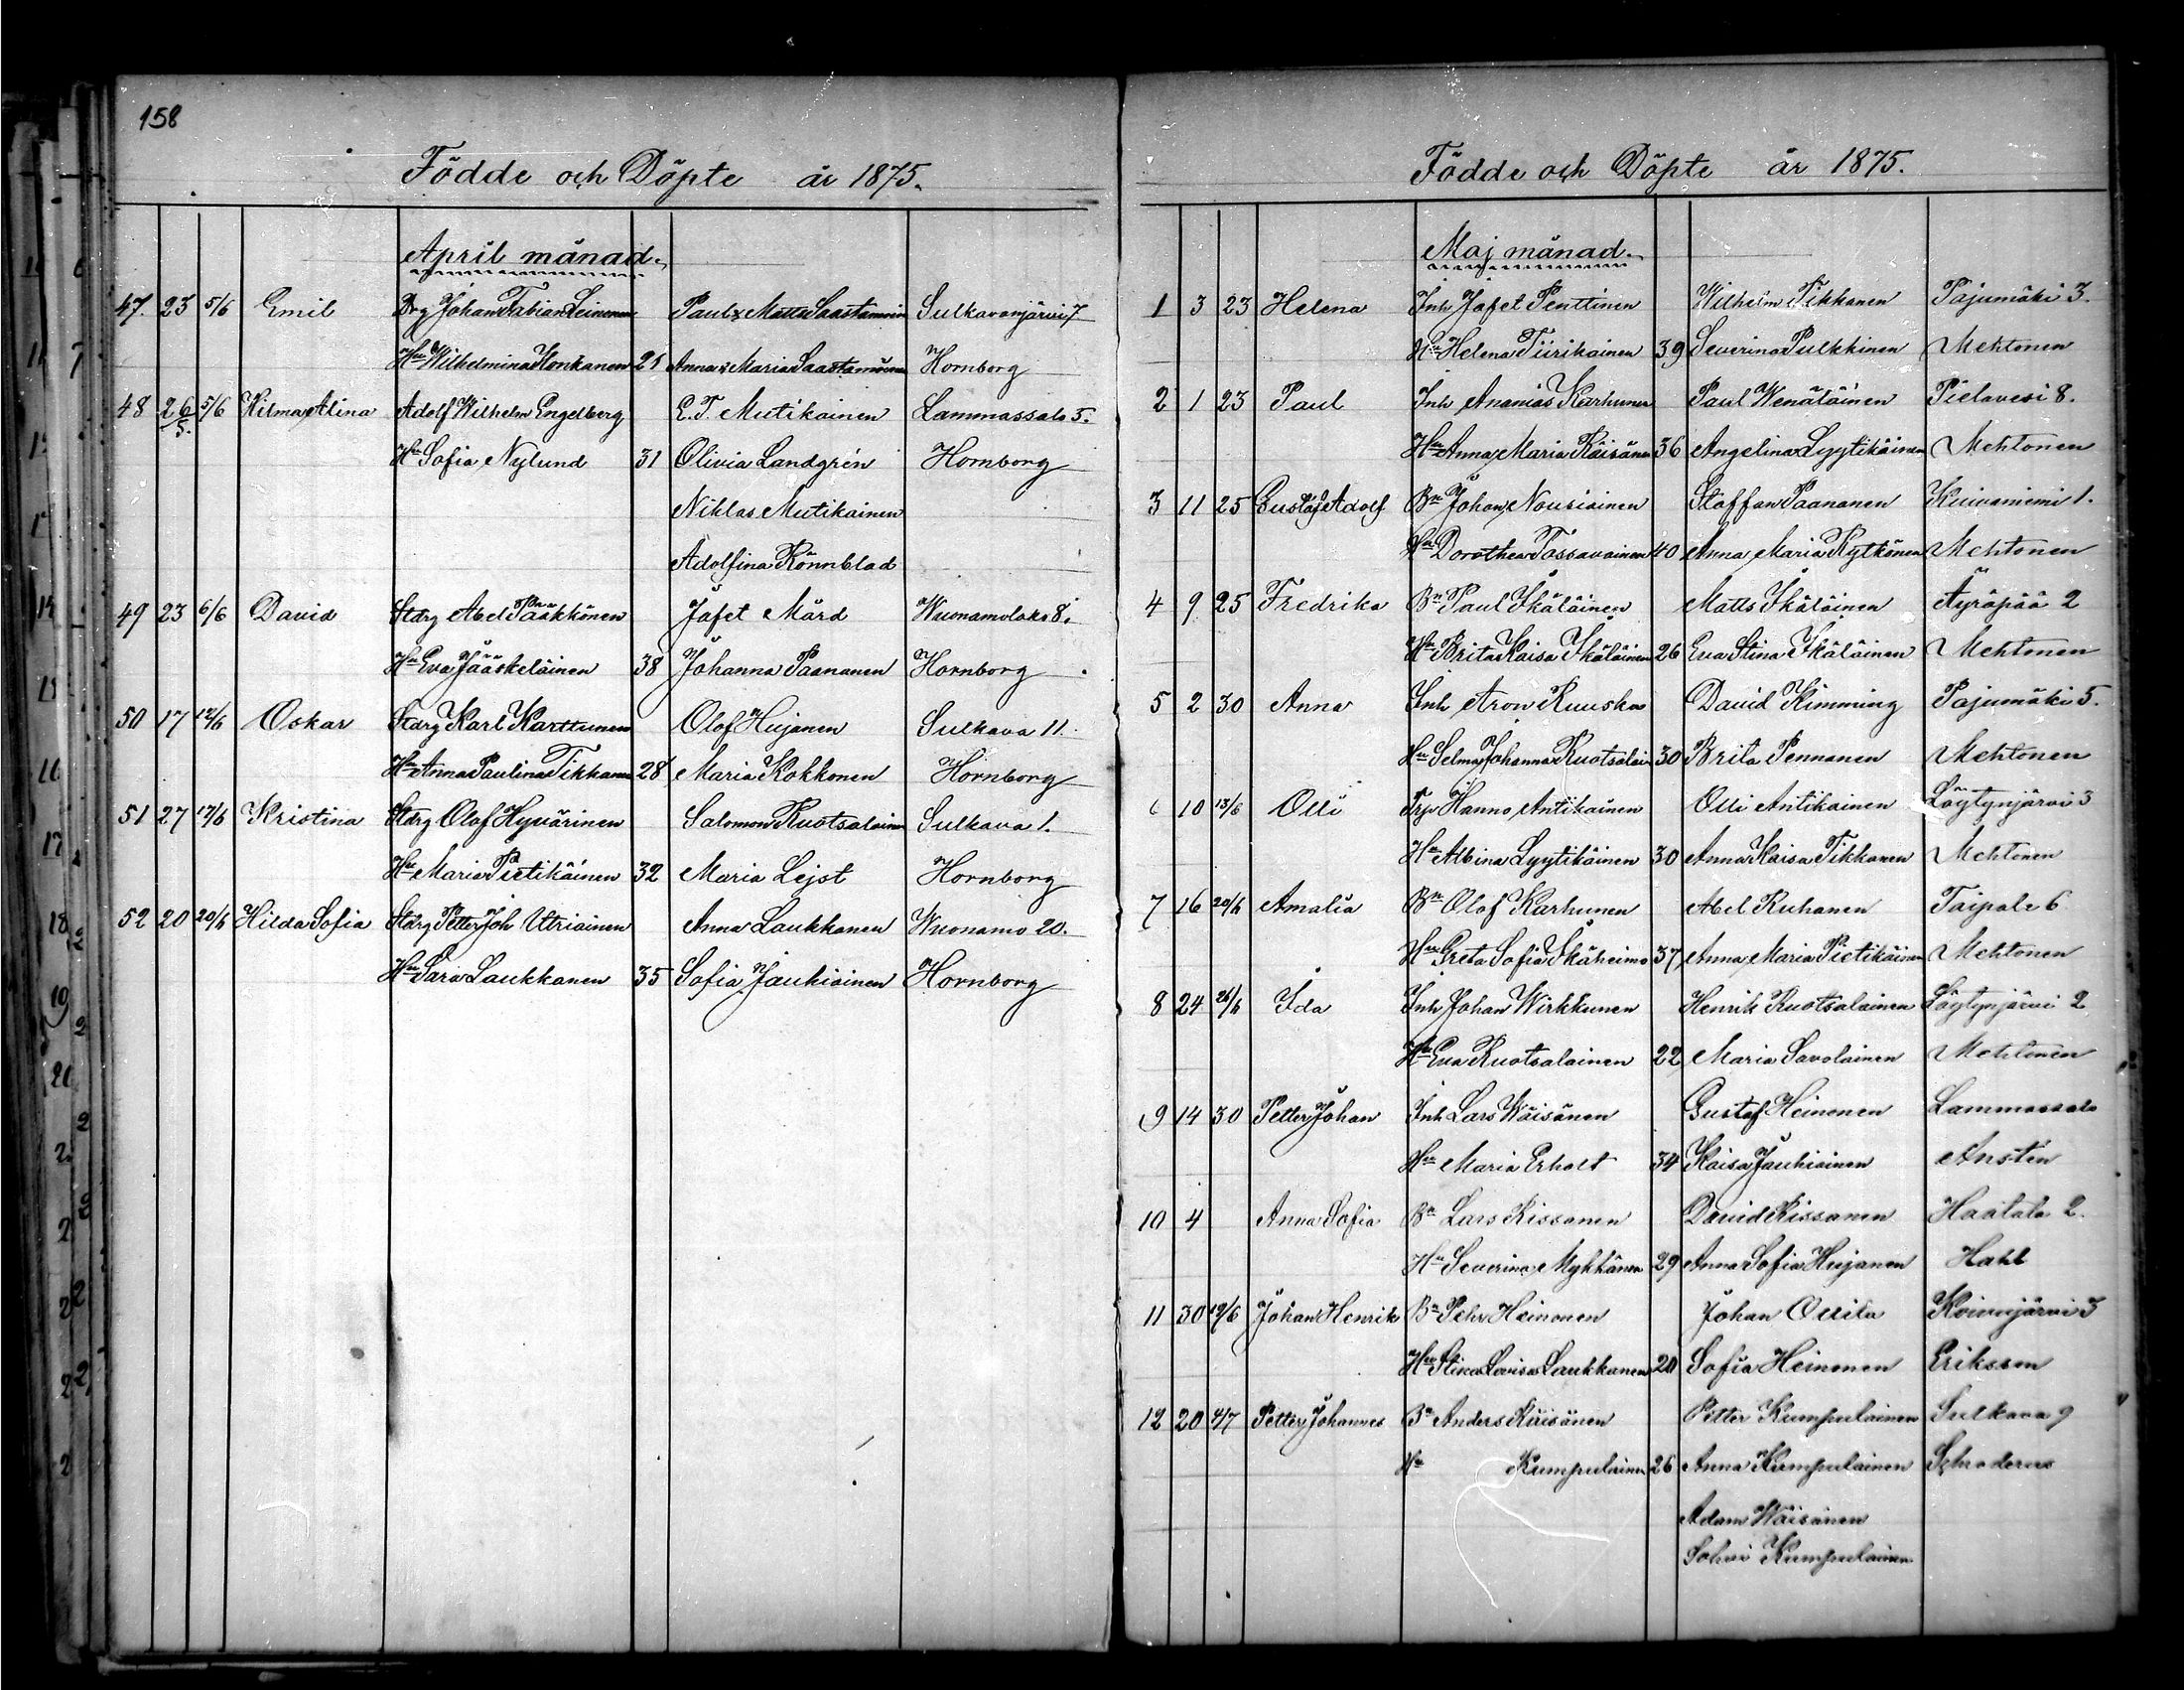 158
Födde och Döpte år 1875.
April månad.
47. 23 5/6 Emil Drg Johan Fabian Leinonen Paul & Matts Saastamoinen Sulkavanjärvi 7
Hu Wilhelmina Konkanen 21 Anna & Maria Saastamoinen Hornborg
48 26/5. 5/6 Hilma Alina Adolf Wilhelm Engelberg E. T. Mutikainen Lammassalo 5.
Hu Sofia Nylund 31 Olivia Landgrén Hornborg
Niklas Mutikainen
Adolfina Rönnblad
49 23 6/6 David Stdrg Abel Pääkkönen Jafet Mård Wuonamolaks 8.
Hu Eva Jääskeläinen 38 Johanna Paananen Hornborg
50 17 12/6 Oskar Stdrg Karl Karttunen Olof Hujanen Sulkava 11.
Hu Anna Paulina Tikkanen 28 Maria Kokkonen Hornborg
51 27 17/6 Kristina Stdrg Olof Hyvärinen Salomon Ruotsalainen Sulkava 1.
Hu Maria Pietikäinen 32 Maria Lejst Hornborg
52 20 20/6 Hilda Sofia Stdrg Petter Joh Utriainen Anna Laukkanen Wuonamo 20.
Hu Sara Laukkanen 35 Sofia Jauhiainen Hornborg
Födde och Döpte år 1875.
Maj månad.
1 3 23 Helena Inh Jafet Penttinen Wilhelm Tikkanen Pajumäki 3.
Hu Helena Tiirikainen 39 Severina Pulkkinen Mehtonen
2 1 23 Paul Inh Ananias Karhunen Paul Wenäläinen Pielavesi 8.
Hu Anna Maria Räisänen 36 Angelina Lyytikäinen Mehtonen
3 11 25 Gustaf Adolf Bn Johan Nousiainen Staffan Paananen Kuivaniemi 1.
Hu Dorothea Tossavainen 40 Anna Maria Kytkönen Mehtonen
4 9 25 Fredrika Bn Paul Ikäläinen Matts Ikäläinen Äyräpää 2
Hu Brita Kaisa Ikäläinen 26 Eva Stina Ikäläinen Mehtonen
5 2 30 Anna Inh Aron Ruuska David Kimming Pajumäki 5.
Hu Selma Johanna Ruotsalain 30 Brita Pennanen Mehtonen
6 10 13/6 Olli Trp Hanno Antikainen Olli Antikainen Löytynjärvi 3
Hu Albina Lyytikäinen 30 Anna Kaisa Tikkanen Mehtonen
7 16 20/6 Amalia Bn Olof Karhunen Abel Ruhanen Taipale 6
Hu Greta Sofia Ikäheimo 37 Anna Maria Pietikäinen Mehtonen
8 24 26/6 Ida Inh Johan Wirkkunen Henrik Ruotsalainen Löytynjärvi 2
Hu Eva Ruotsalainen 22 Maria Savolainen Mehtonen
9 14 30 Petter Johan Inh Lars Wäisänen Gustaf Heinonen Lammassalo
Hu Maria Erholt 34 Kaisa Jauhiainen Anstén
10 4 Anna Sofia Bn Lars Kissanen David Kissanen Haatala 2.
Hu Severina Mykkänen 29 Anna Sofia Hujanen Hahl
11 30 19/6 Johan Henrik Bn Pehr Heinonen Johan Ollila Koivujärvi 3
Hu Stina Lovisa Laukkanen 20 Sofia Heinonen Eriksson
12 20 4/7 Petter Johannes Bn Anders Kiiisänen Petter Kumpulainen Sulkava 9
Hu Kumpulainen 26 Anna Kumpulainen Schroderus
Adam Wäisänen
Kumpulainen